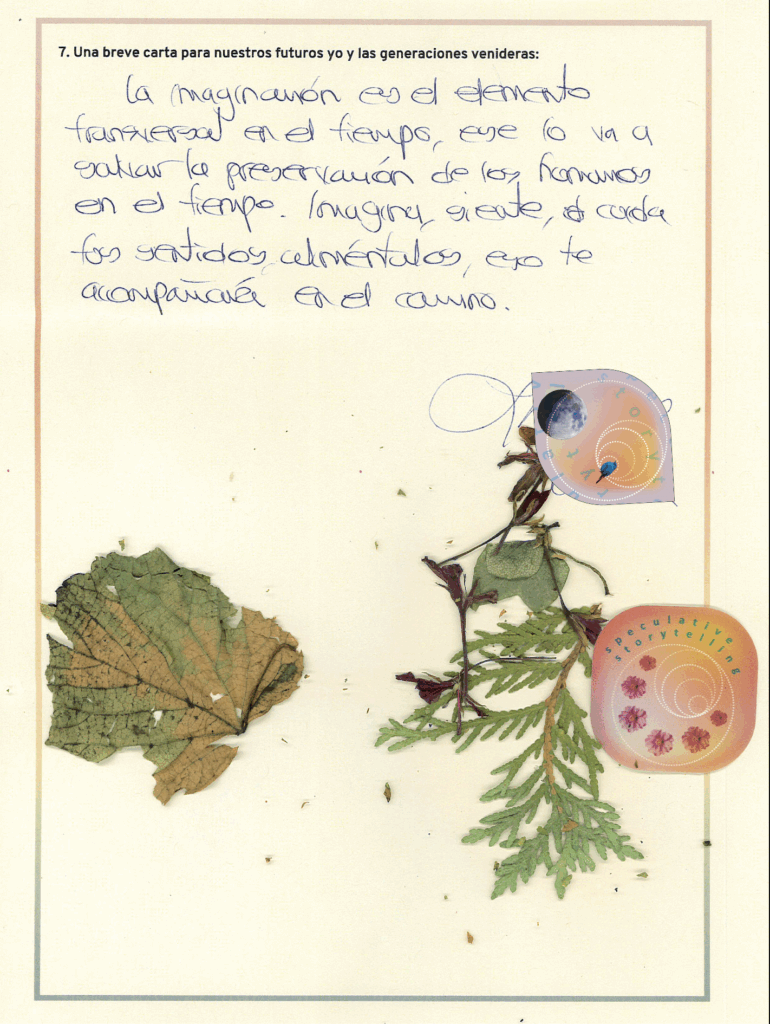 7. Una breve carta para nuestros futuros yo y las generaciones venideras:
La imaginación es el elemento
transversal en el tiempo, ese lo va a
salvar la preservación de los humanos
en el tiempo. Imagina, siente, cuida
tus sentidos, aliméntalos, eso te
acompañará en el camino.
speculative
storytelling